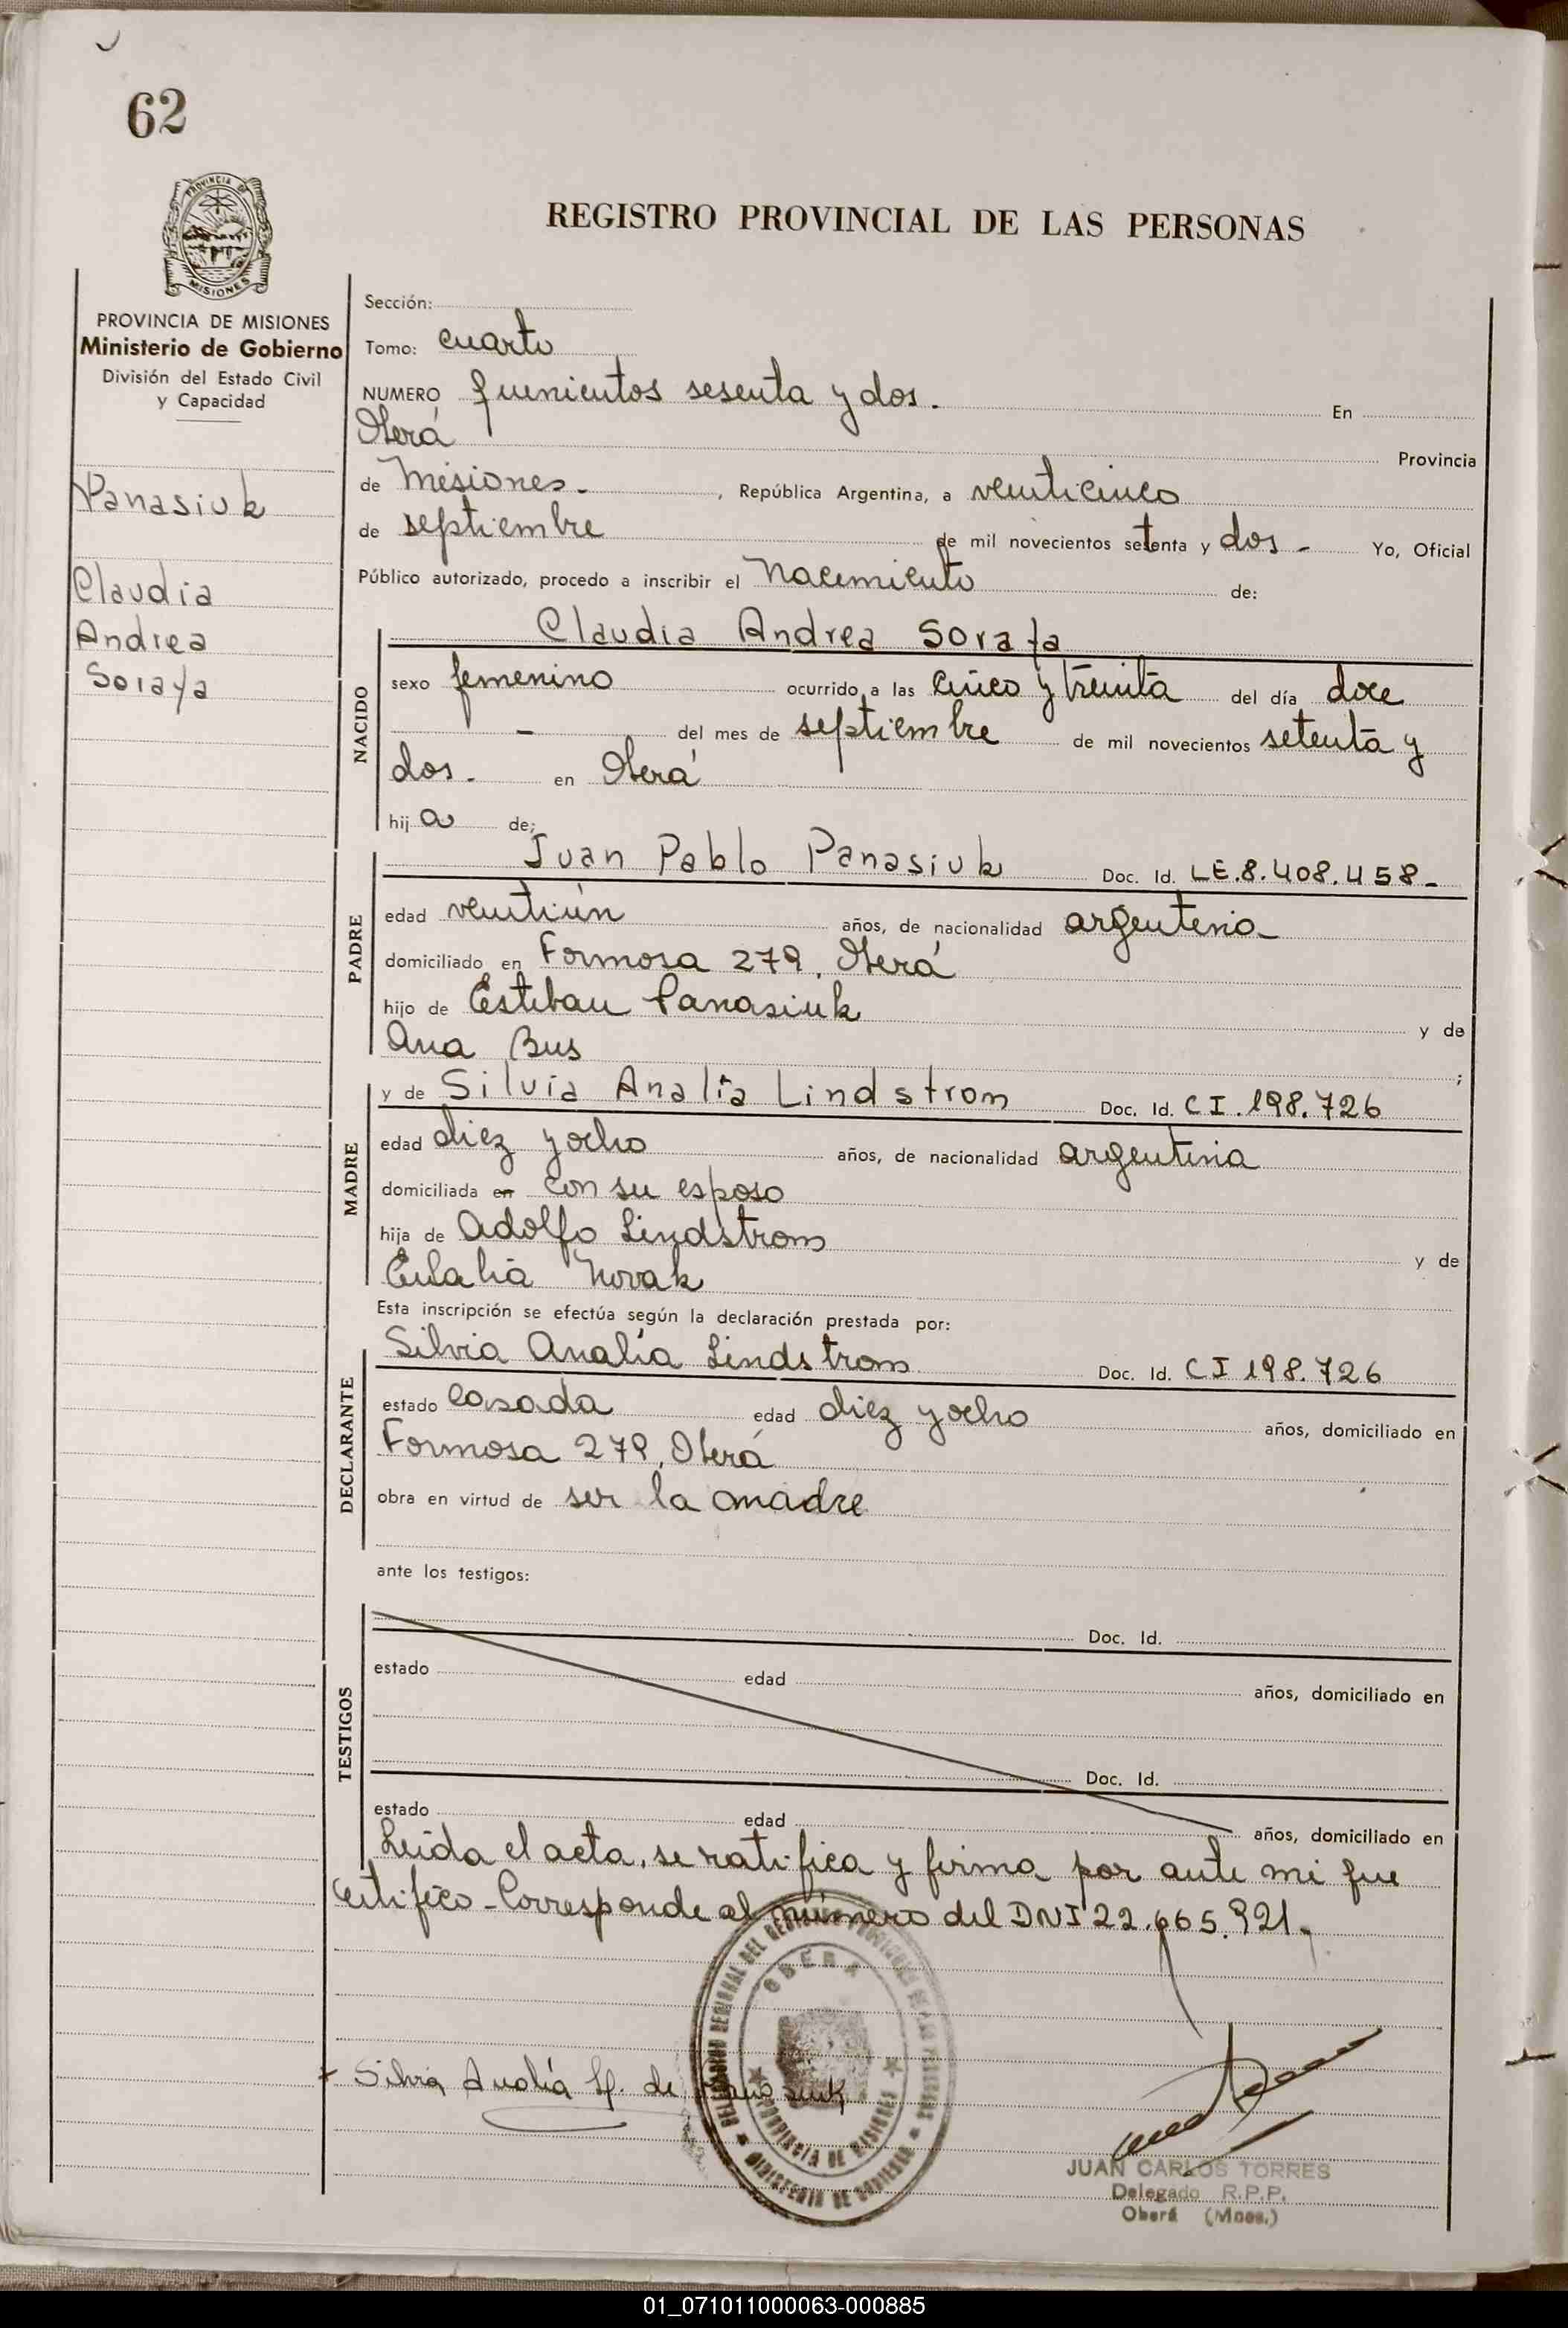 62
PROVINCIA DE
MISIONES
REGISTRO PROVINCIAL DE LAS PERSONAS
PROVINCIA DE MISIONES
Ministerio de Gobierno
División del Estado Civil
y Capacidad
Panasiuk
Claudia
Andrea
Soraya
Sección:
Tomo: cuarto
NUMERO quinientos sesenta y dos. En
Oberá Provincia
de Misiones. , República Argentina, a veinticinco
de septiembre de mil novecientos setenta y dos - Yo, Oficial
Público autorizado, procedo a inscribir el Nacimiento de:
NACIDO
Claudia Andrea Soraya
sexo femenino ocurrido a las cinco y treinta del día doce
- del mes de septiembre de mil novecientos setenta y
dos. en Oberá
hij a de:
PADRE
Juan Pablo Panasiuk Doc. Id. LE.8.408.458-
edad veintiún años, de nacionalidad argentina
domiciliado en Formosa 279, Oberá
hijo de Esteban Panasiuk y de
Ana Bus ;
MADRE
y de Silvia Analía Lindstrom Doc. Id. CI.198.726
edad diez y ocho años, de nacionalidad argentina
domiciliada en con su esposo
hija de Adolfo Lindstrom y de
Eulalia Novak
Esta inscripción se efectúa según la declaración prestada por:
DECLARANTE
Silvia Analía Lindstrom Doc. Id. CI 198.726
estado casada edad diez y ocho años, domiciliado en
Formosa 279, Oberá
obra en virtud de ser la madre
ante los testigos:
TESTIGOS
Doc. Id.
estado edad años, domiciliado en
Doc. Id.
estado edad años, domiciliado en
Leída el acta, se ratifica y firma por ante mi que
certifico - Corresponde al número del DNI 22.665.921.
OBERA
PROVINCIA DE MISIONES
Silvia Analía L. de Panasiuk
JUAN CARLOS TORRES
Delegado R.P.P.
Oberá (Mnes.)
01_071011000063-000885